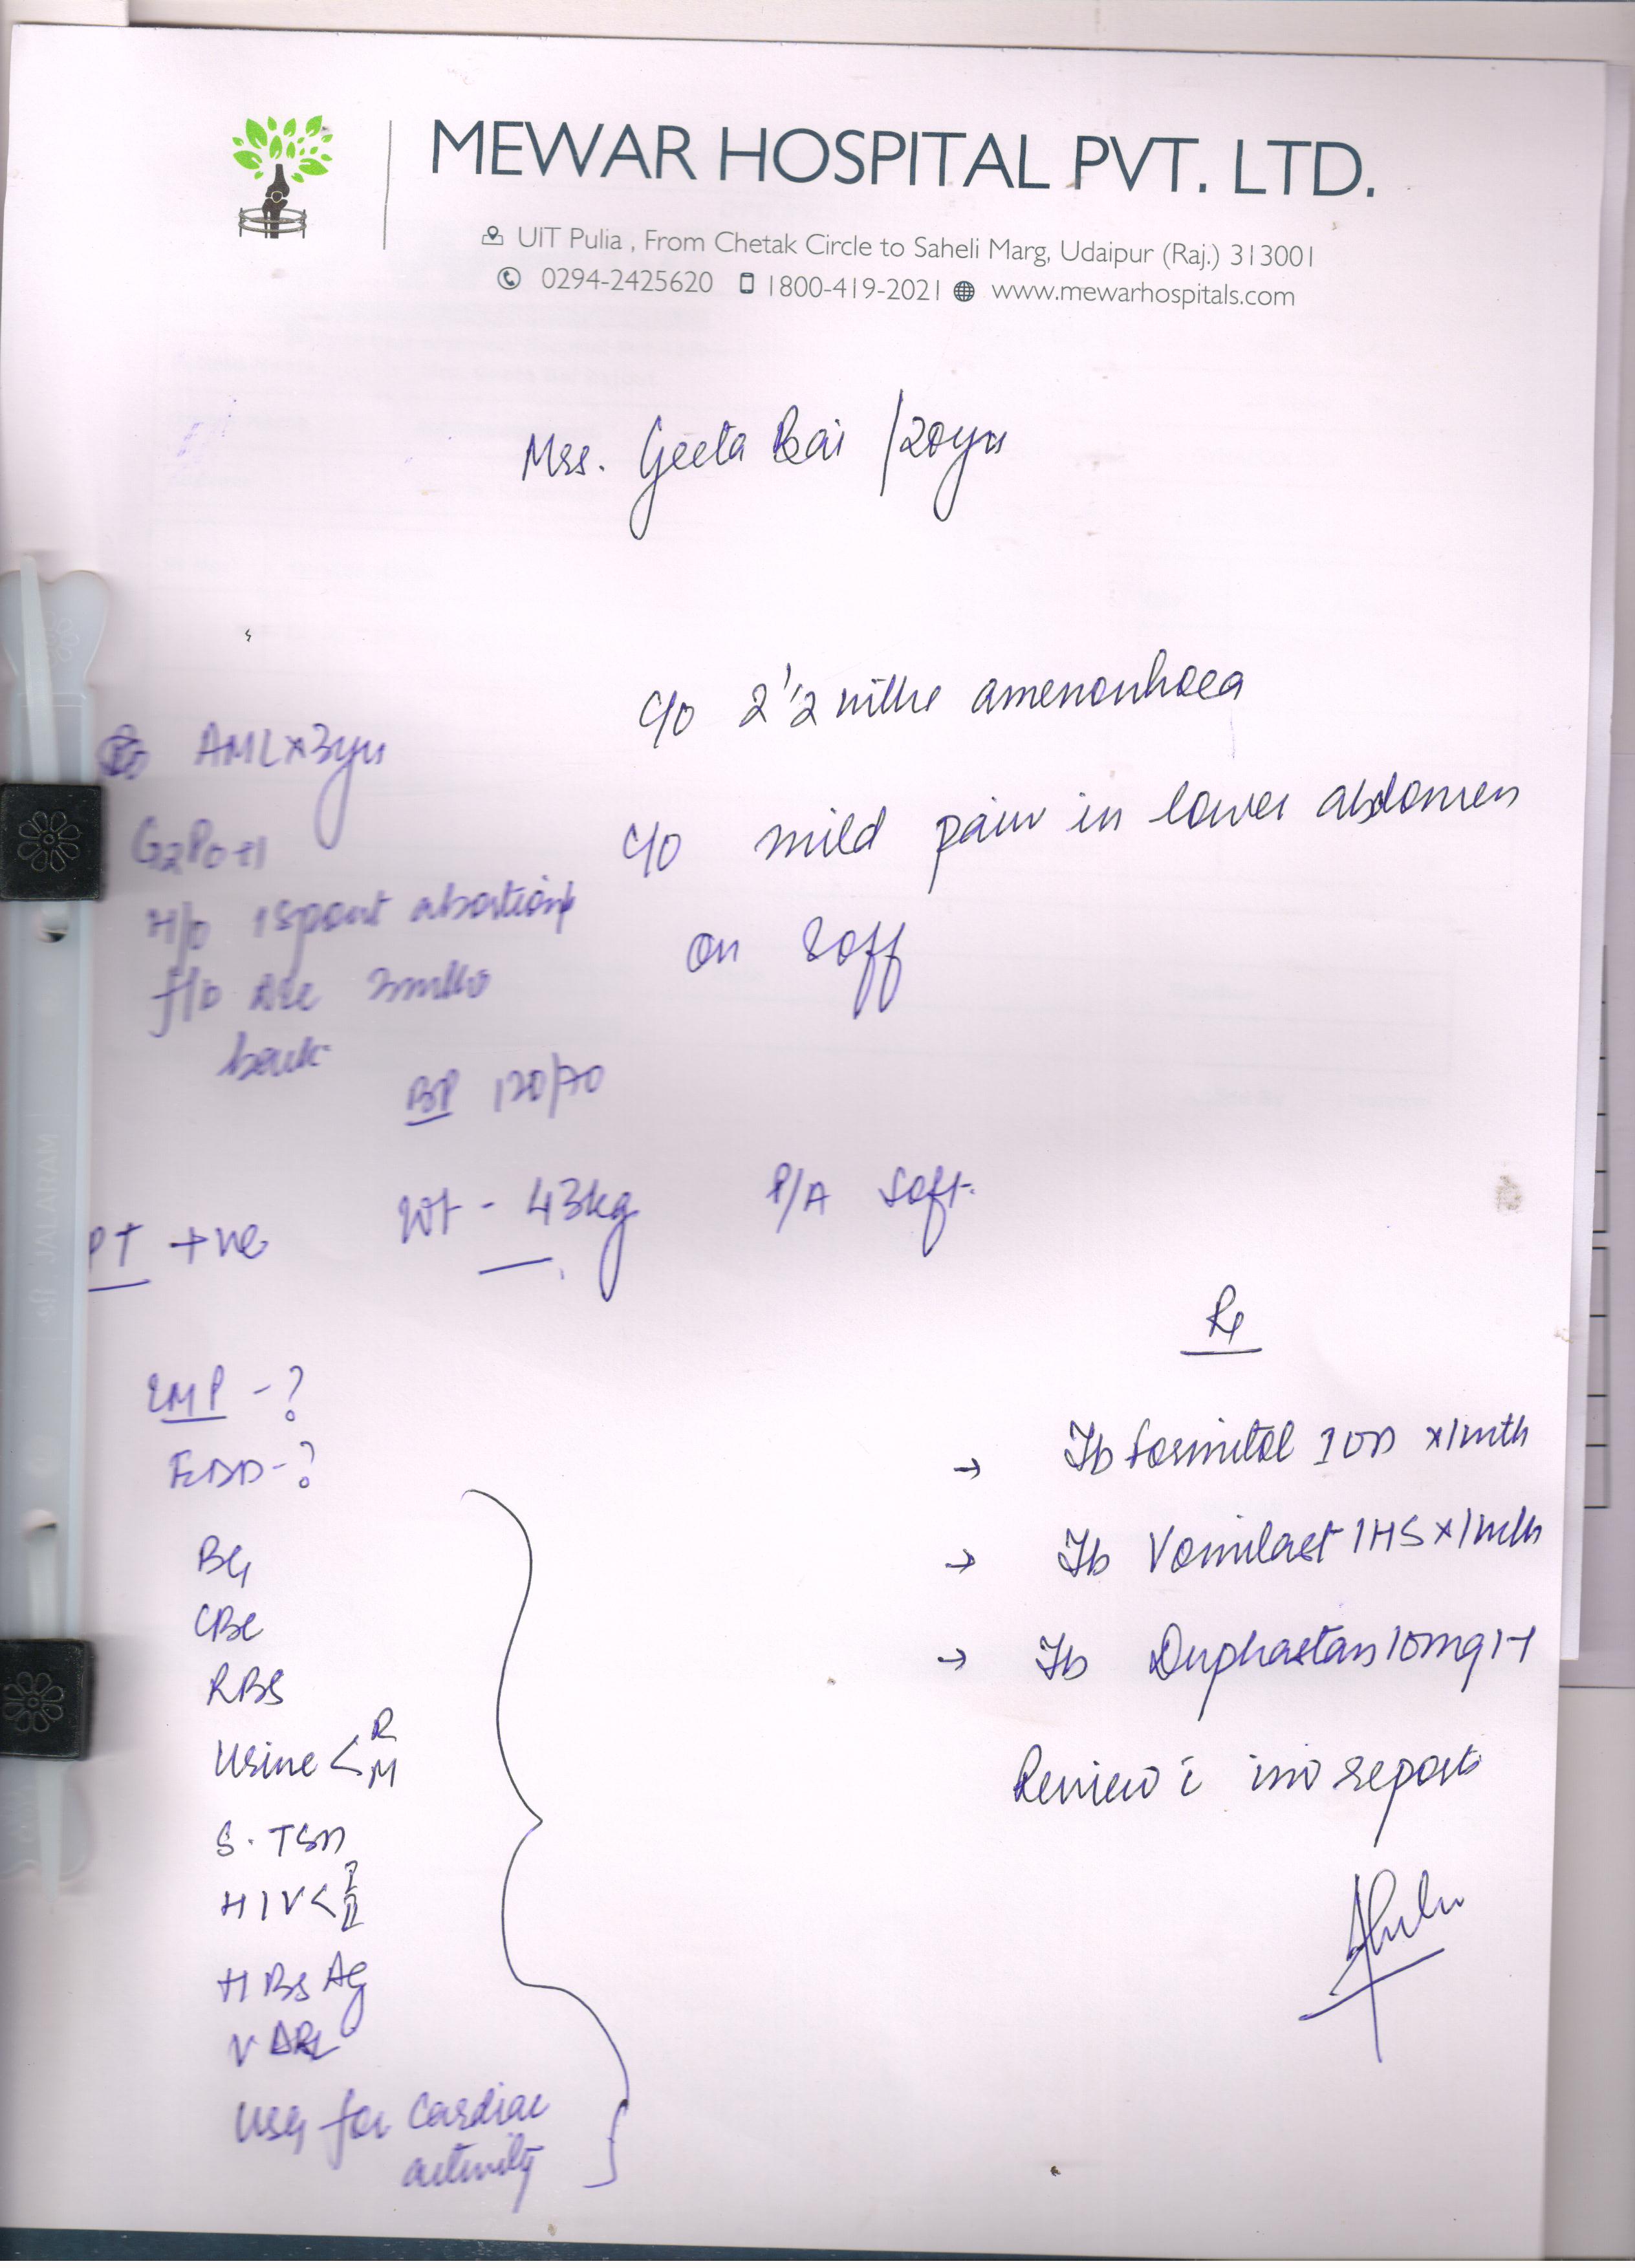 MEWAR HOSPITAL PVT. LTD.
UIT Pulia , From Chetak Circle to Saheli Marg, Udaipur (Raj.) 313001
0294-2425620 1800-419-2021 www.mewarhospitals.com
Mrs. Geeta Bai /20yrs
c/o 2 1/2 mths amenorrhoea
AML x 3yrs
c/o mild pain in lower abdomen
G2P0+1
H/o 1 spont abortion
on & off
f/b D&C 3mths
back
BP 120/70
Wt - 43kg P/A Soft.
PT +ve
Rx
LMP - ?
EDD - ?
→ Tb 1 OD x 1mth
→ Tb Vomilast 1 HS x 1mth
→ Tb Duphaston 10mg
Review c inv reports
BG
CBC
RBS
Urine < R M
S. TSH
HIV < I II
HBsAg
VDRL
USG for Cardiac
activity
SFI JALARAM